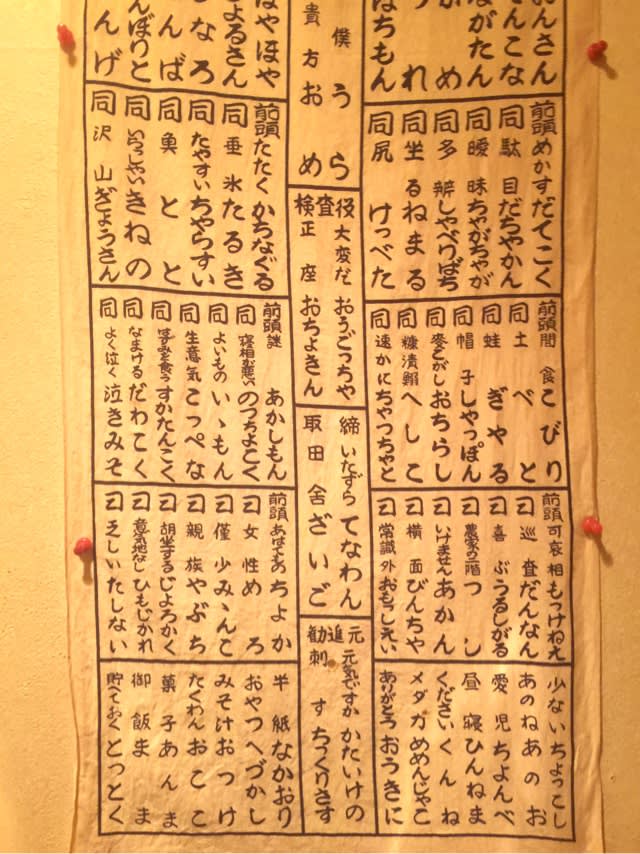 おんさん
てんこな
ながたん
がめ
つれ
はちもん
僕 うら
貴方 おめ
ほやほや
じよるさん
しなろ
んば
んぼりと
んげ
前頭 めかす だてこく
同 駄目 だちやかん
同 曖昧 ちやがちやが
同 多辨 しやべりばち
同 坐る ねまる
同 尻 けつぺた
検査役
大変だ おうごつちや
正座 おちよきん
前頭 たたく かちなぐる
同 垂氷 たるき
同 たやすい ちやらすい
同 魚 とと
同 いらつしやい きねの
同 沢山 ぎようさん
前頭 間食 こびり
同 土 べと
同 蛙 ぎやる
同 帽子 しやつぽん
同 麥こがし おちらし
同 糠漬鰯 へしこ
同 速かに ちやつちやと
前頭 謎 あかしもん
同 寝相が悪い のつちよこく
同 よいもの いゝもん
同 生意気 こつぺな
同 はずみを食う すかたんこく
同 なまける だわこく
同 よく泣く 泣きみそ
取締
いたずら てなわん
田舎 ざいご
前頭 可哀相 もつけねえ
同 巡査 だんなん
同 喜ぶ うるしがる
同 農家の二階 つし
同 いけません あかん
同 横面 びんちや
同 常識外 おもつしえい
前頭 あはてもの ちよか
同 女性 めろ
同 僅少 みゝんこ
同 親族 やぶち
同 胡坐する じよろかく
同 意気地なし ひもじかれ
同 乏しい たしない
勧進元
元気ですか かたいけの
刺す ちつくりさす
少ない ちよつこし
あのね あのお
愛児 ちよんべ
昼寝 ひんねま
ください くんね
メダカ めめんじやこ
ありがとう おうきに
半紙 なかおり
おやつ へづかし
みそ汁 おつけ
たくわん おここ
菓子 あんま
御飯 まま
貯へておく とつとく